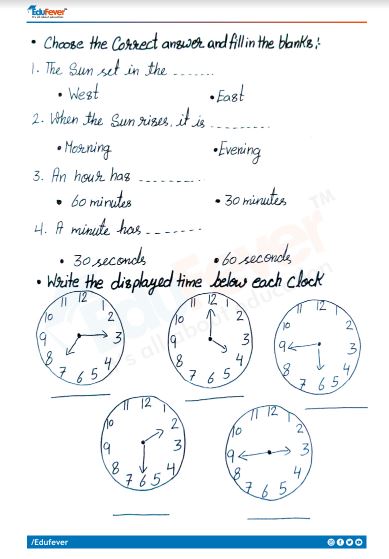 EduFever
It's all about education
• Choose the Correct answer and fill in the blanks:
1. The Sun set in the -------
• West
• East
2. When the Sun rises, it is ---------
• Morning
• Evening
3. An hour has ---------
• 60 minutes
• 30 minutes
4. A minute has --------
• 30 seconds
• 60 seconds
• Write the displayed time below each clock
12 1 2 3 4 5 6 7 8 9 10 11
12 1 2 3 4 5 6 7 8 9 10 11
12 1 2 3 4 5 6 7 8 9 10 11
12 1 2 3 4 5 6 7 8 9 10 11
12 1 2 3 4 5 6 7 8 9 10 11
EduFever™
/Edufever